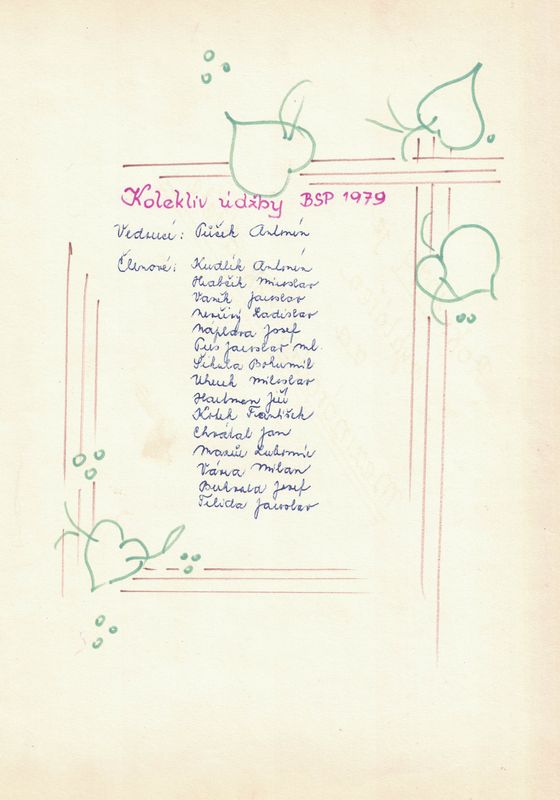 Kolektiv údžby BSP 1979
Vedoucí: Půček Antonín
Členové: Kudlik Antonín
Hrabčík Miroslav
Vaněk Jaroslav
Ladislav
Náplava Josef
Jaroslav ml.
Sikula Bohumil
Uherek Miloslav
Hartman Jiří
Kotek František
Chvátal Jan
Mazur Lubomír
Vávra Milan
Josef
Jaroslav